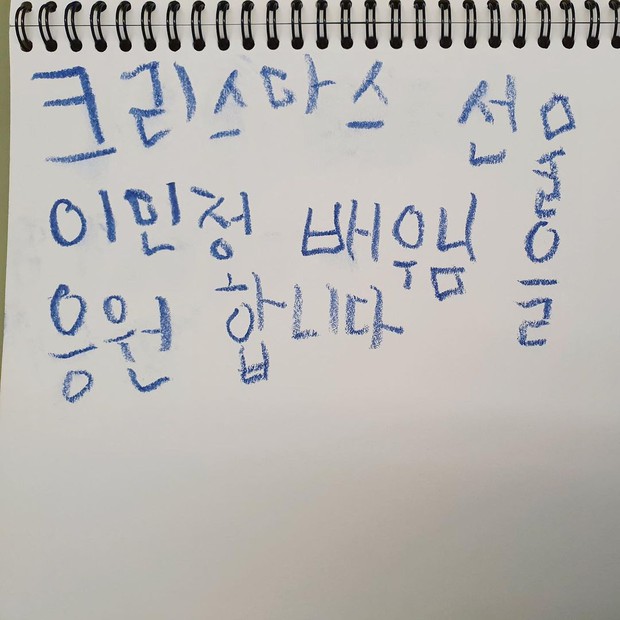 크리스마스 선물을
이민정 배우님
응원 합니다